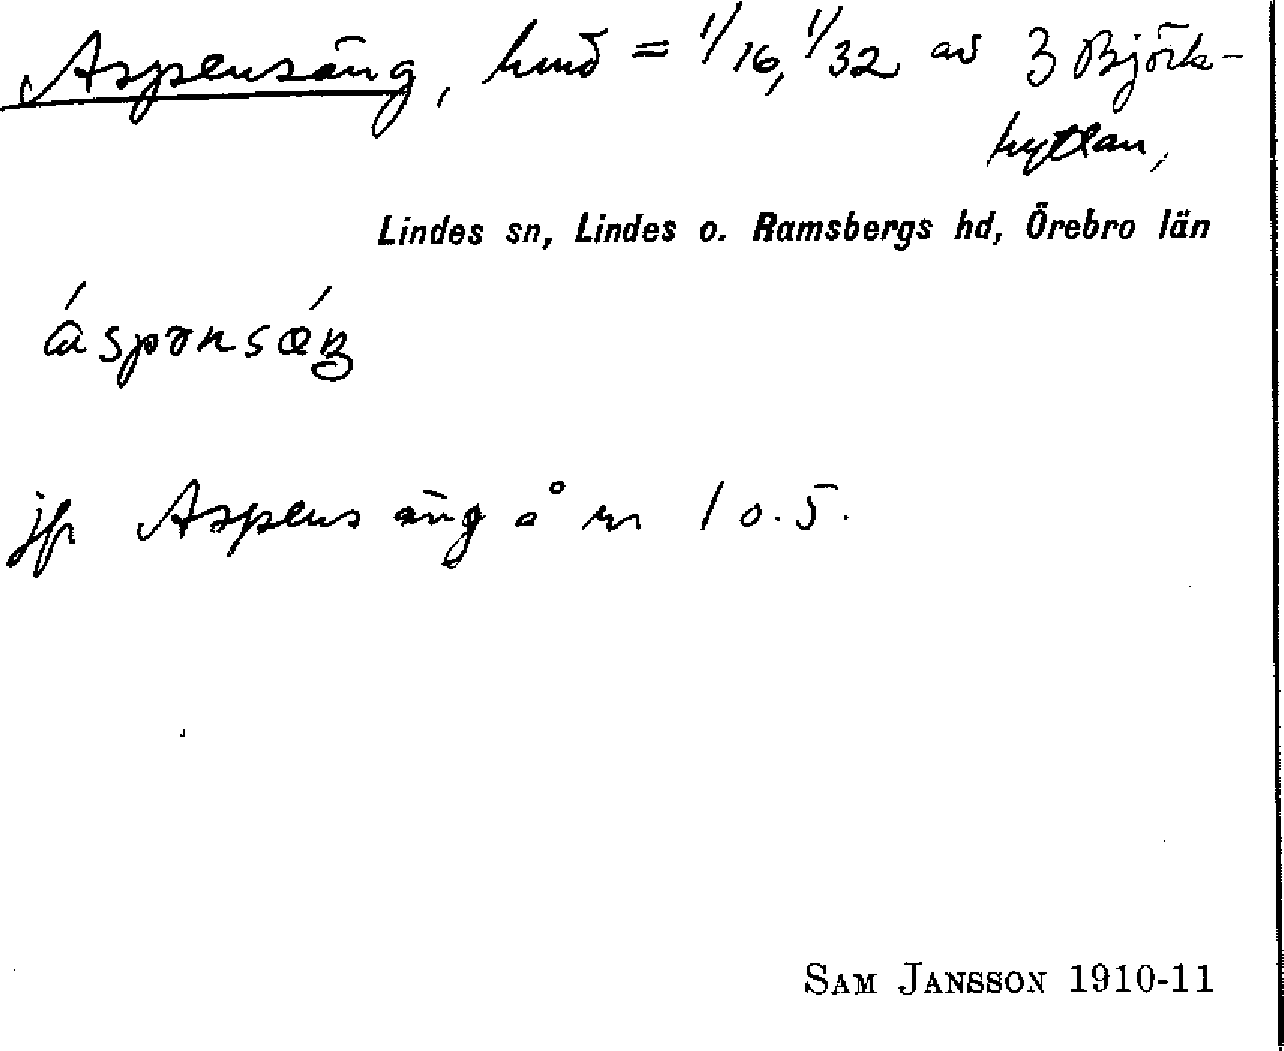 Aspensäng, hmd = 1/16, 1/32 av 3 Björk-
hyttan,
Lindes sn, Lindes o. Ramsbergs hd, Örebro län
áspənsǽŋ
jfr Aspens äng å nr 1 o. 5.
SAM JANSSON 1910-11